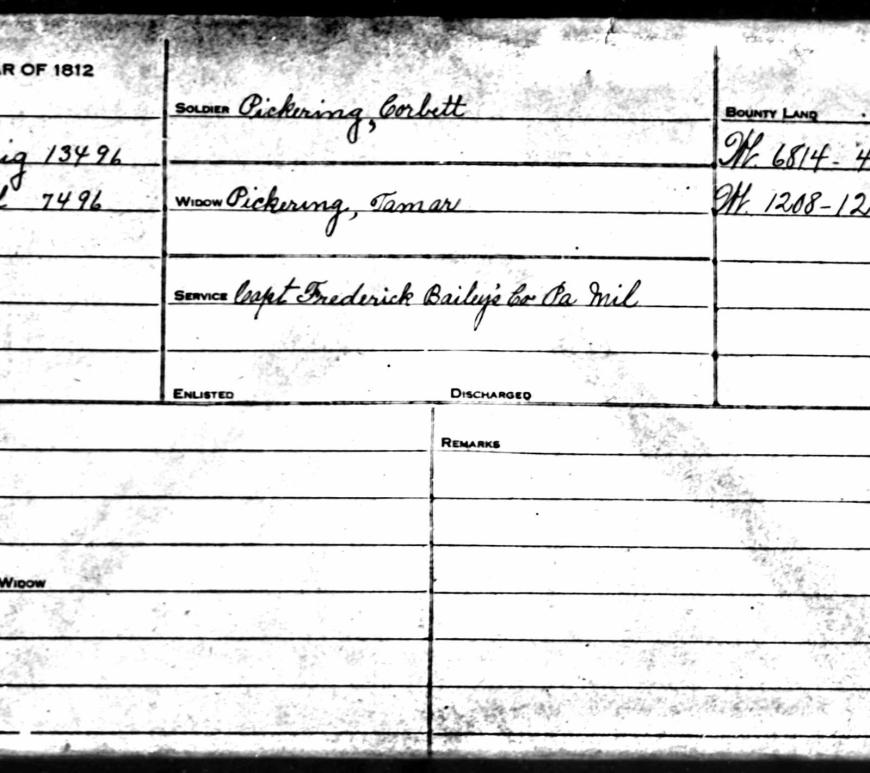 R OF 1812
SOLDIER Pickering, Corbett
BOUNTY LAND
ig 13496
Wt. 6814-4
7496
WIDOW Pickering, Tamar
Wt. 1208-12
SERVICE Capt Frederick Bailey's Co Pa Mil
ENLISTED DISCHARGED
REMARKS
WIDOW